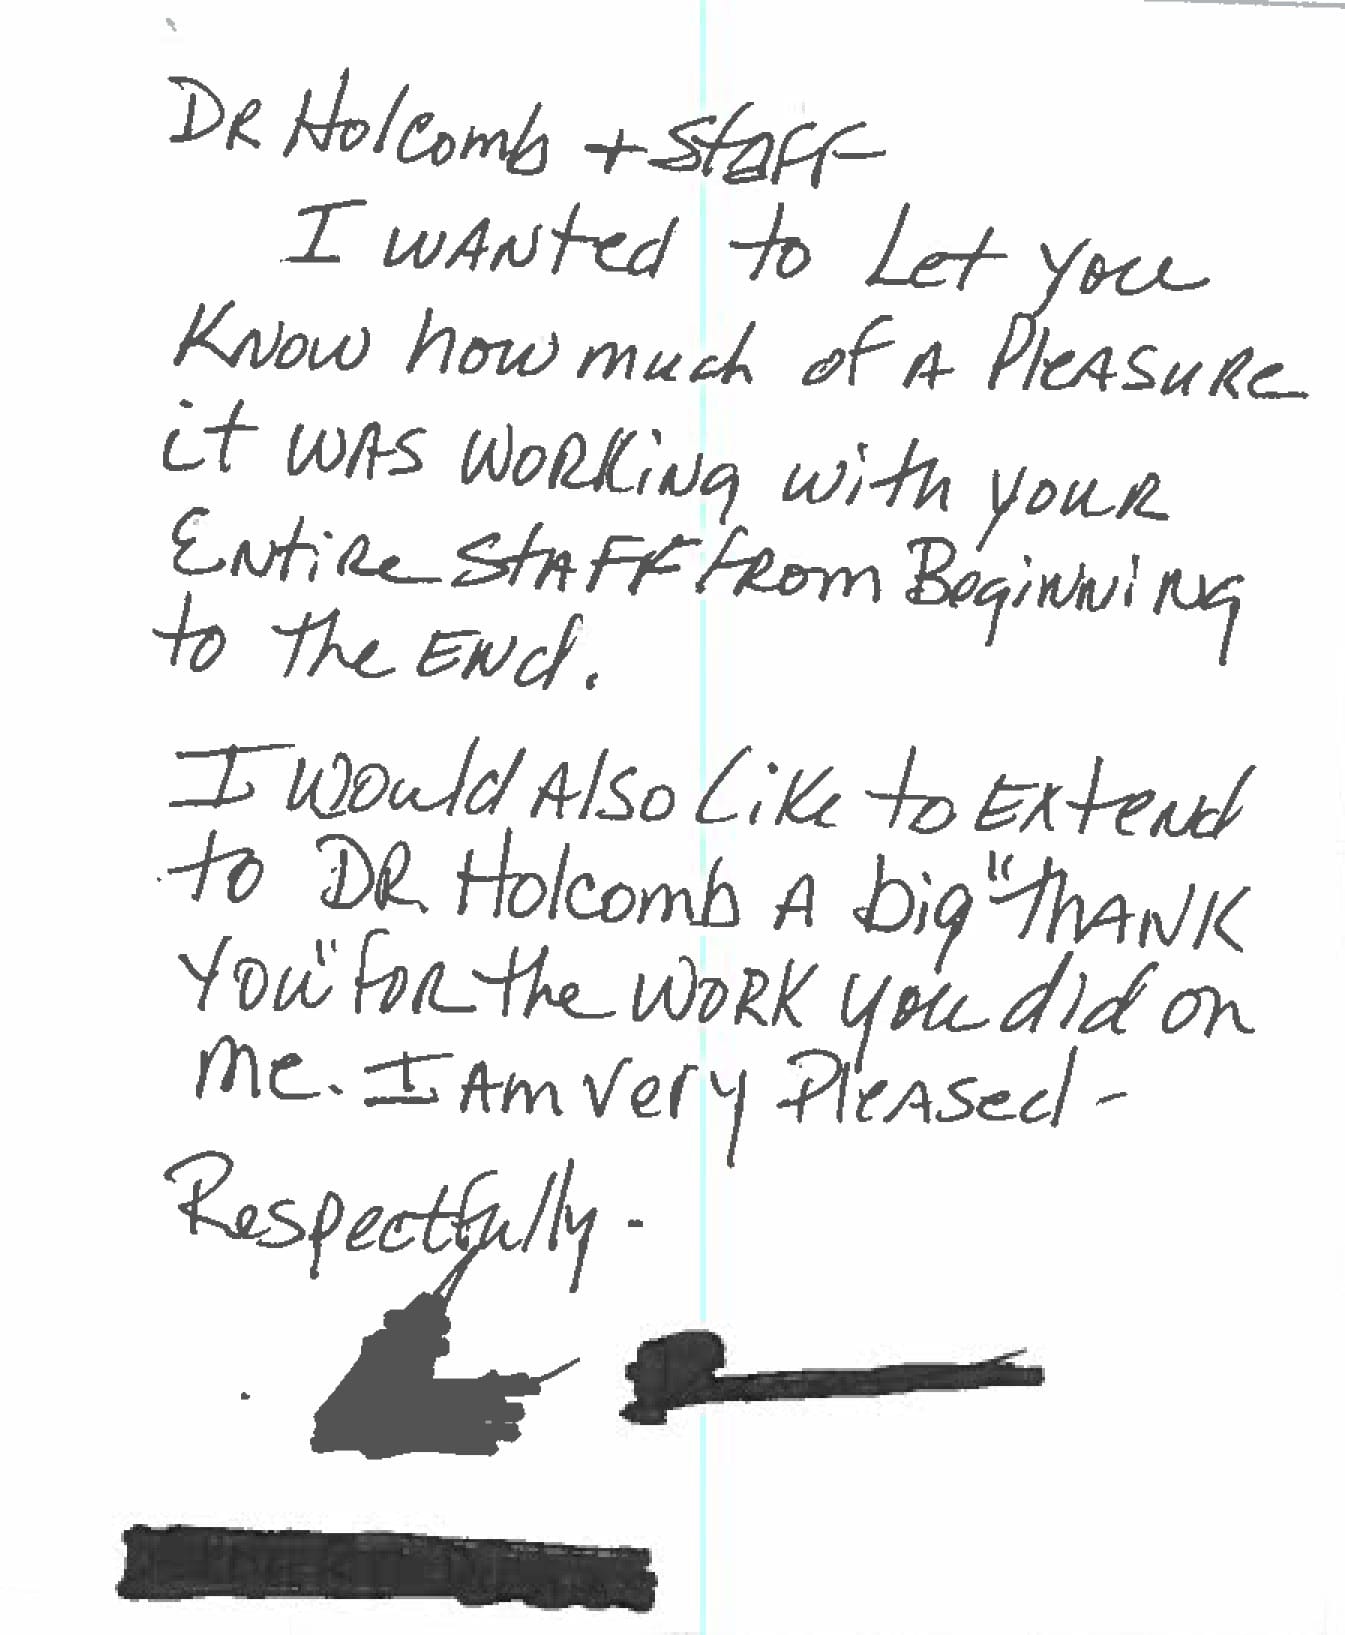 DR Holcomb + Staff
I wanted to Let you
Know how much of A Pleasure
it was working with your
Entire Staff from Beginning
to the End.
I would Also Like to Extend
to DR. Holcomb A big "Thank
You" for the work you did on
me. I Am very Pleased -
Respectfully -